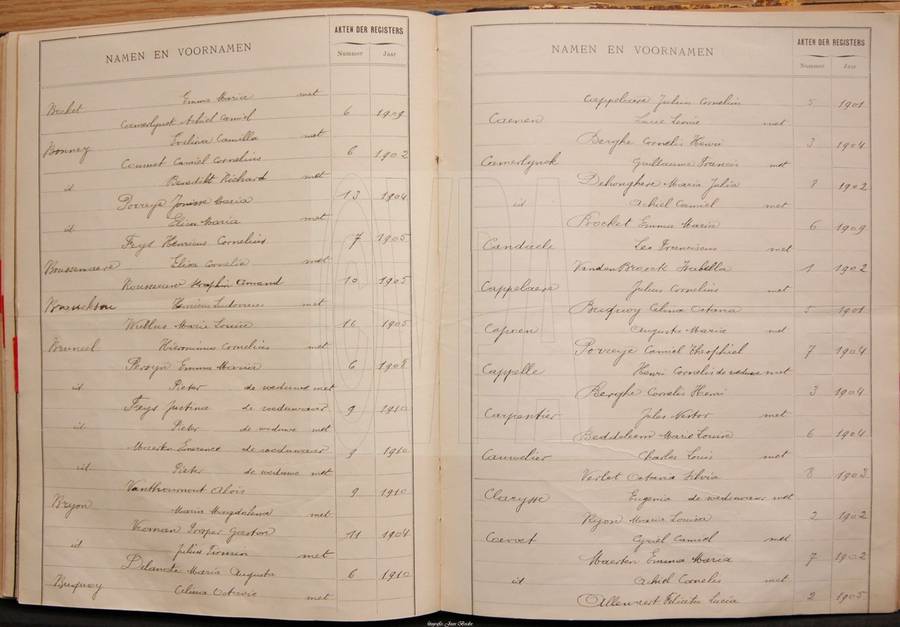 NAMEN EN VOORNAMEN
AKTEN DER REGISTERS
Nummer Jaar
Becket Emma Maria met
Camerlynck Achiel Camiel 6 1909
Bonney Evelina Camilla met
Coumet Camiel Cornelius 6 1902
id Benedikt Richard met
Porreye Maria 13 1904
id Elisa Maria met
Feys Henricus Cornelius 7 1905
Boussemaere Elisa Cornelia met
Rousseeuw Seraphin Armand 10 1905
Henricus Ludovicus met
Marie Louise 16 1905
Bruneel Hieronimus Cornelius met
Persyn Emma Maria 6 1908
id Pieter de weduwe met
Feys Justina de weduwnaer 9 1910
id Pieter de weduwe met
Maerten Emerence de weduwnaer 9 1910
id Pieter de weduwe met
Vanthournout Alois 9 1910
Bryon Maria Magdalena met
Veoman Prosper Gaston 11 1904
id Julius Firmin met
Delancte Maria Augusta 6 1910
Buquoy Alma Octavie met
NAMEN EN VOORNAMEN
AKTEN DER REGISTERS
Nummer Jaar
Cappelaere Julius Cornelius 5 1901
Caenen Lucie Leonie met
Berghe Cornelis Henri 3 1904
Camerlynck Guillaume Francis met
Dehonghere Maria Julia 8 1902
id Achiel Camiel met
Brocket Emma Maria 6 1909
Candaele Leo Franciscus met
VandenBroeck Isabella 1 1902
Cappelaere Julius Cornelius met
Buquoy Alma Octavia 5 1901
Capoen Augusta Maria met
Porreye Camiel Theophiel 7 1904
Cappelle Henri Cornelis de weduwe met
Berghe Cornelis Henri 3 1904
Carpentier Jules Nestor met
Beddeleem Marie Louise 6 1904
Cauwelier Charles Louis met
Verlot Octavia Silvia 8 1903
Claeysse Eugenia de weduwnaer met
Ryon Maria Louisa 2 1902
Coevoet Cyriel Camiel met
Maerten Emma Maria 7 1902
id Achiel Camelis met
Allemeest Felicita Lucia 2 1905